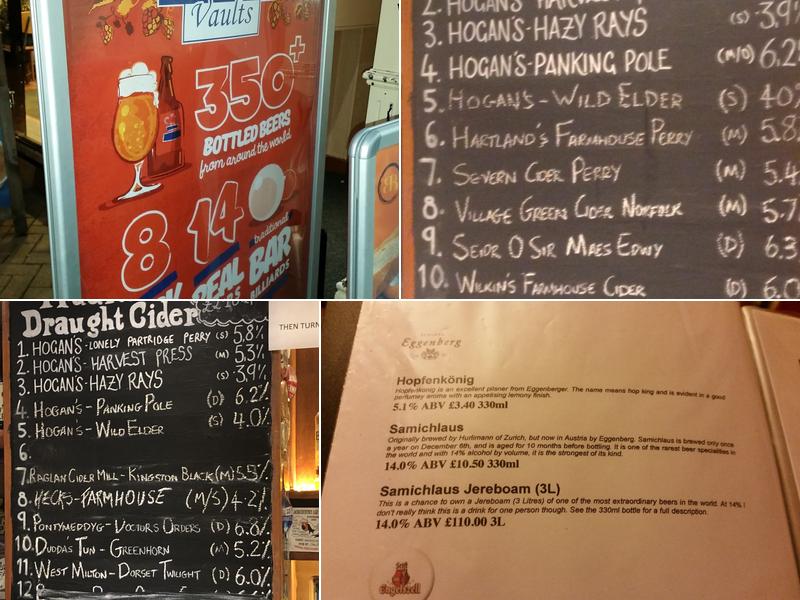 Vaults
350+
BOTTLED BEERS
from around the world
8 14
traditional
REAL BAR
BILLIARDS
3. HOGAN'S-HAZY RAYS
4. HOGAN'S-PANKING POLE (M/D) 6.2
5. HOGAN'S-WILD ELDER (S) 40%
6. HARTLAND'S FARMHOUSE PERRY (M) 5.8
7. SEVERN CIDER PERRY (M) 5.4
8. VILLAGE GREEN CIDER NORFOLK (M) 5.7
9. SEIDR O SIR MAES EDWY (D) 6.3
10. WILKIN'S FARMHOUSE CIDER (D) 6.0
Draught Cider
THEN TURN
1. HOGAN'S-LONELY PARTRIDGE PERRY (S) 5.8%
2. HOGAN'S-HARVEST PRESS (M) 5.3%
3. HOGAN'S-HAZY RAYS (S) 3.9%
4. HOGAN'S-PANKING POLE (D) 6.2%
5. HOGAN'S-WILD ELDER (S) 4.0%
6.
7. RAGLAN CIDER MILL-KINGSTON BLACK (M) 5.5%
8. HECKS-FARMHOUSE (M/S) 4.2%
9. PONTYMEDDYG-DOCTORS ORDERS (D) 6.8%
10. DUDDA'S TUN-GREENHORN (M) 5.2%
11. WEST MILTON-DORSET TWILIGHT (D) 6.0%
12
Eggenberg
Hopfenkönig
Hopfenkönig is an excellent pilsner from Eggenberger. The name means hop king and is evident in a good
perfumey aroma with an appetising lemony finish.
5.1% ABV £3.40 330ml
Samichlaus
Originally brewed by Hurlimann of Zurich, but now in Austria by Eggenberg. Samichlaus is brewed only once
a year on December 6th, and is aged for 10 months before bottling. It is one of the rarest beer specialities in
the world and with 14% alcohol by volume, it is the strongest of its kind.
14.0% ABV £10.50 330ml
Samichlaus Jereboam (3L)
This is a chance to own a Jereboam (3 Litres) of one of the most extraordinary beers in the world. At 14% I
don't really think this is a drink for one person though. See the 330ml bottle for a full description.
14.0% ABV £110.00 3L
Stift
Engelszell